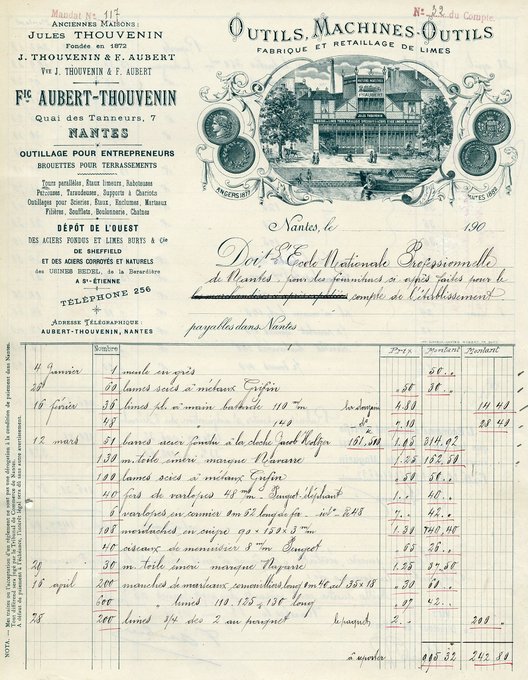 Mandat No 117
No 22 du Compte.
ANCIENNES MAISONS:
JULES THOUVENIN
Fondée en 1872
J. THOUVENIN & F. AUBERT
Vve J. THOUVENIN & F. AUBERT
Fic AUBERT-THOUVENIN
Quai des Tanneurs, 7
NANTES
OUTILLAGE POUR ENTREPRENEURS
BROUETTES POUR TERRASSEMENTS
Tours parallèles, Étaux limeurs, Raboteuses
Perceuses, Taraudeuses, Supports à Chariots
Outillages pour Scieries, Étaux, Enclumes, Marteaux
Filières, Soufflets, Boulonnerie, Chaînes
DÉPÔT DE L'OUEST
DES ACIERS FONDUS ET LIMES BURYS & Cie
DE SHEFFIELD
ET DES ACIERS CORROYÉS ET NATURELS
des USINES BEDEL, de la Berardière
A St-ÉTIENNE
TÉLÉPHONE 256
ADRESSE TÉLÉGRAPHIQUE:
AUBERT-THOUVENIN, NANTES
OUTILS, MACHINES-OUTILS
FABRIQUE ET RETAILLAGE DE LIMES
JULES THOUVENIN
ANGERS 1877
NANTES 1882
Nantes, le 190
Doit L'Ecole Nationale Professionnelle
de Nantes, pour les fournitures ci après faites pour le
compte de l'établissement
payables dans Nantes
Nombre Prix Montant Montant
4 Janvier 1 meule en grès 50 ..
26 60 lames scies à métaux Griffin .50 30 ..
16 février 36 limes pl. à main batarde 110 m/m la douzaine 4.80 14 40
48 140 do 7.10 28 40
12 mars 51 barres acier fondu à la cloche Jacob Holtzer 161.500 1.95 314.92
130 m. toile émeri marque Navarre 1.25 162,50
100 lames scies à métaux Griffin .50 50 ..
40 fers de varlopes 48 m/m Peugeot éléphant 1 .. 40 ..
6 varlopes en cormier 0m52 long de fer 7 .. 42 ..
108 mordaches en cuivre 90 × 150 × 3 m/m 1.30 140,40
40 ciseaux de menuisier 8 m/m Peugeot .65 26 ..
29 30 m. toile émeri marque Navarre 1.25 37,50
16 avril 200 manches de marteaux cornouillers long 0m40 œil 35 × 18 .30 60 ..
600 " limes 110. 125 & 130 long .07 42 ..
28 200 limes 3/4 des 2 au poignet le paquet 2 .. 200 ..
à reporter 995 32 242 80
NOTA. — Mes traites ou l'acceptation d'un règlement ne sont pas une dérogation à la condition de paiement dans Nantes.
Tout différend sera jugé par le Tribunal de Commerce de Nantes.
A défaut de paiement à l'échéance, l'intérêt légal sera dû sans autre avertissement.